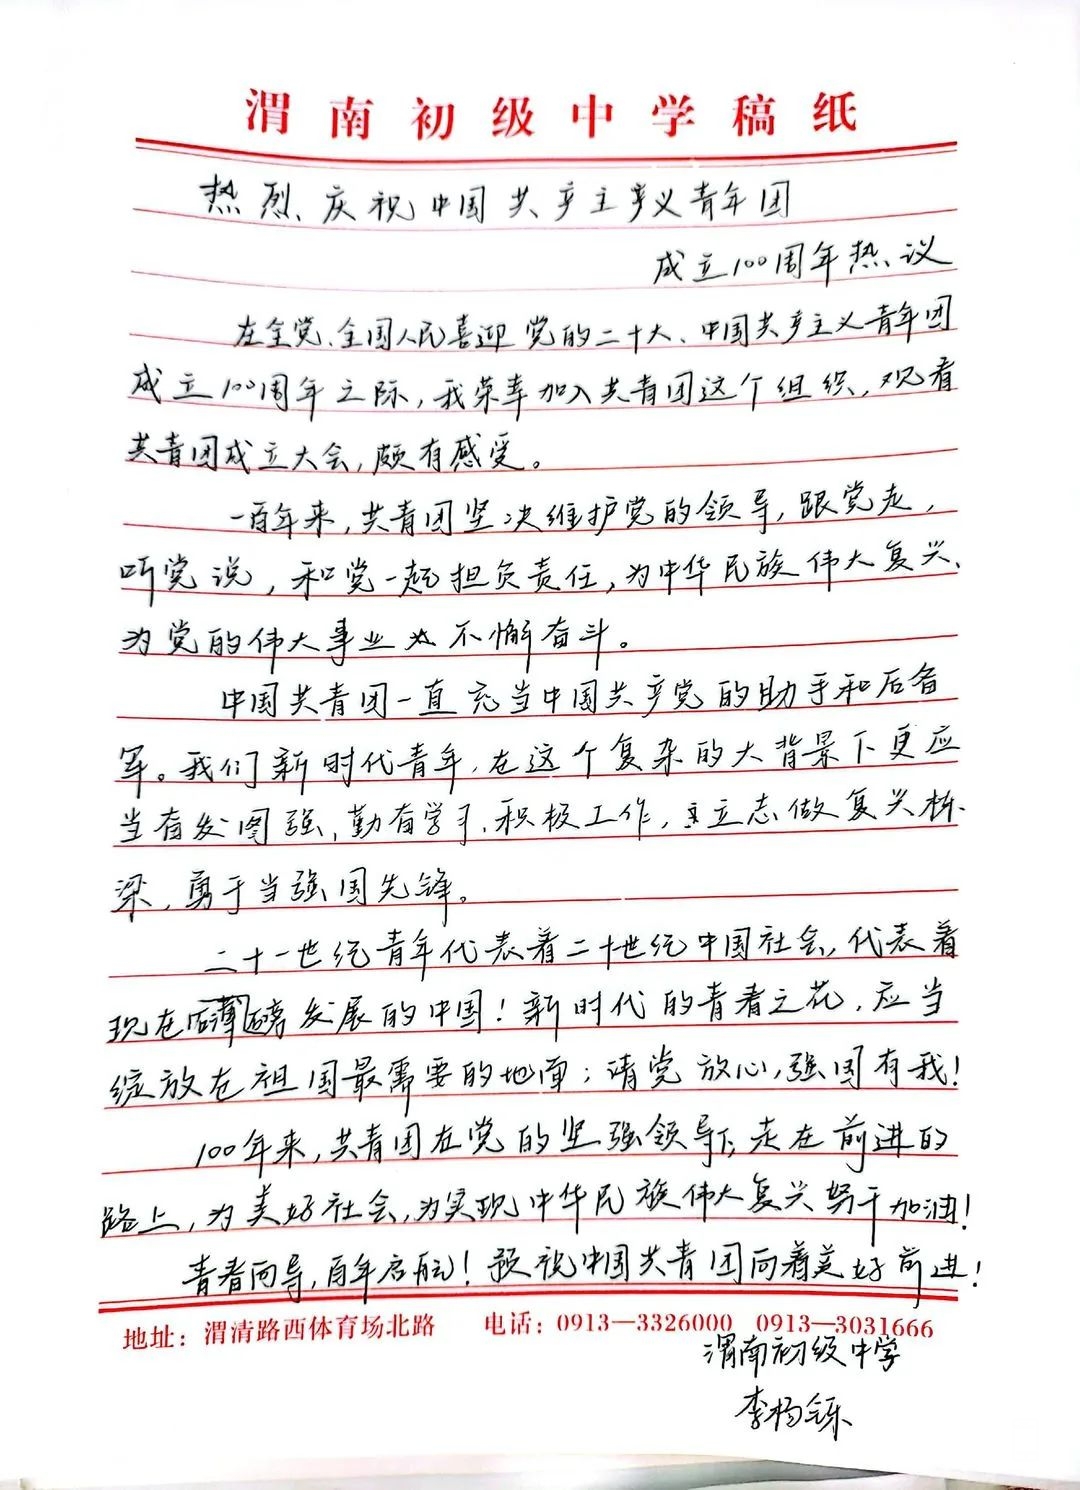 渭南初级中学稿纸
热烈庆祝中国共产主产义青年团
成立100周年热议
在全党、全国人民喜迎党的二十大、中国共产主义青年团
成立100周年之际，我荣幸加入共青团这个组织，观看
共青团成立大会，颇有感受。
一百年来，共青团坚决维护党的领导，跟党走，
听党说，和党一起担负责任，为中华民族伟大复兴、
为党的伟大事业 不懈奋斗。
中国共青团一直充当中国共产党的助手和后备
军。我们新时代青年，在这个复杂的大背景下更应
当奋发图强、勤奋学习、积极工作，立志做复兴栋
梁，勇于当强国先锋。
二十一世纪青年代表着二十世纪中国社会，代表着
现在磅礴发展的中国！新时代的青春之花，应当
绽放在祖国最需要的地方；请党放心，强国有我！
100年来，共青团在党的坚强领导下，走在前进的
路上，为美好社会，为实现中华民族伟大复兴努干加油！
青春向导，百年启航！预祝中国共青团向着美好前进！
地址：渭清路西体育场北路 电话：0913—3326000 0913—3031666
渭南初级中学
李杨铄